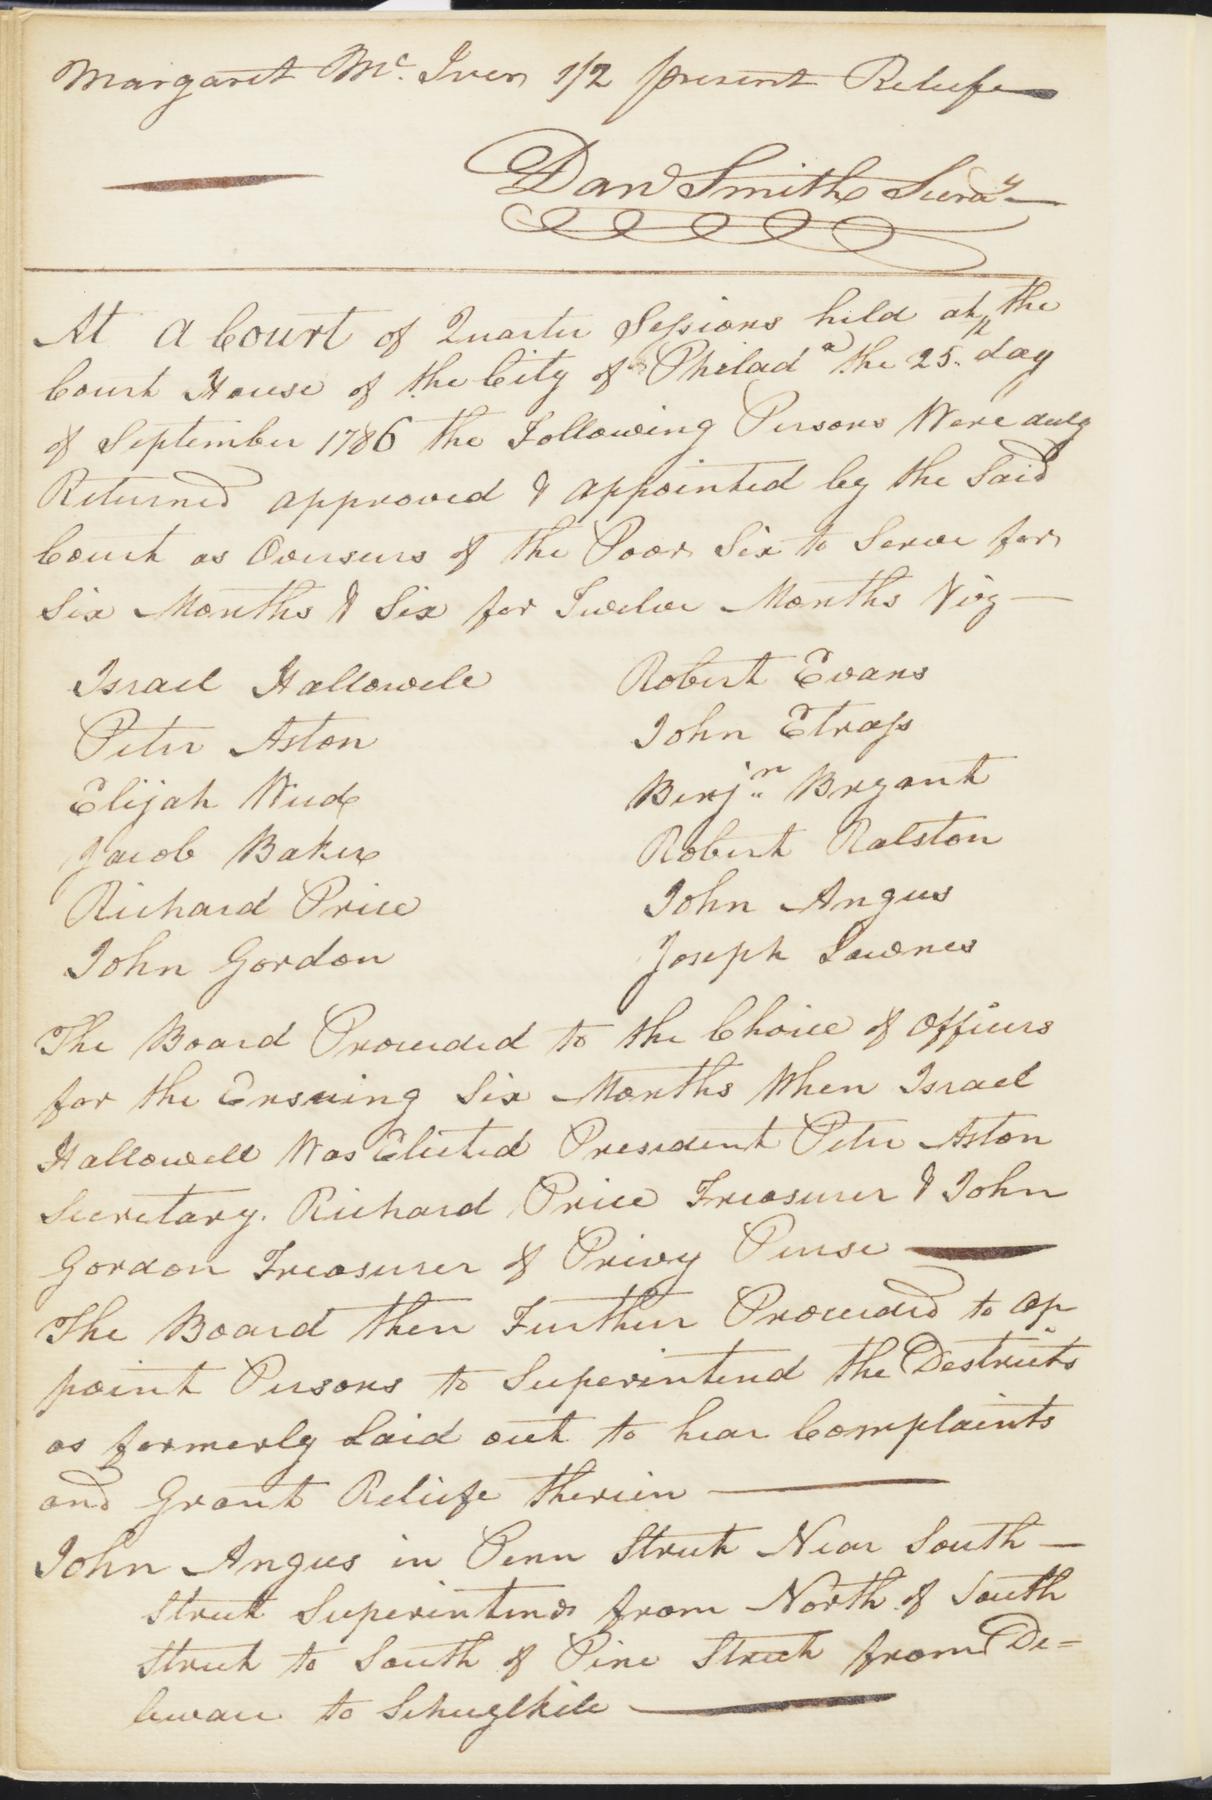 Margaret Mc. Iver 7/2 present Reliefe
Dan Smith Secra.y
At a Court of Quarter Sessions held at the
Court House of the City of Philad.a the 25.th day
of September 1786 the Following Persons Were duly
Returned approved & appointed by the Said
Court as Overseers of the Poor Six to Serve for
Six Months & Six for Twelve Months Viz —
Israel Hallowell
Peter Aston
Elijah Weed
Jacob Baker
Richard Price
John Gordon
Robert Evans
John Strass
Benj.n Bryant
Robert Ralston
John Angus
Joseph Lownes
The Board Proceeded to the Choice of officers
for the Ensuing Six Months When Israel
Hallowell Was Elected President Peter Aston
Secretary. Richard Price Treasurer & John
Gordon Treasurer of Privy Purse —
The Board then Further Proceeded to ap
point Persons to Superintend the Destricts
as formerly Laid out to hear Complaints
and Grant Reliefe therein —
John Angus in Penn Street Near South —
Street Superintends from North of South
Street to South of Pine Street from De=
leware to Schuylkill —